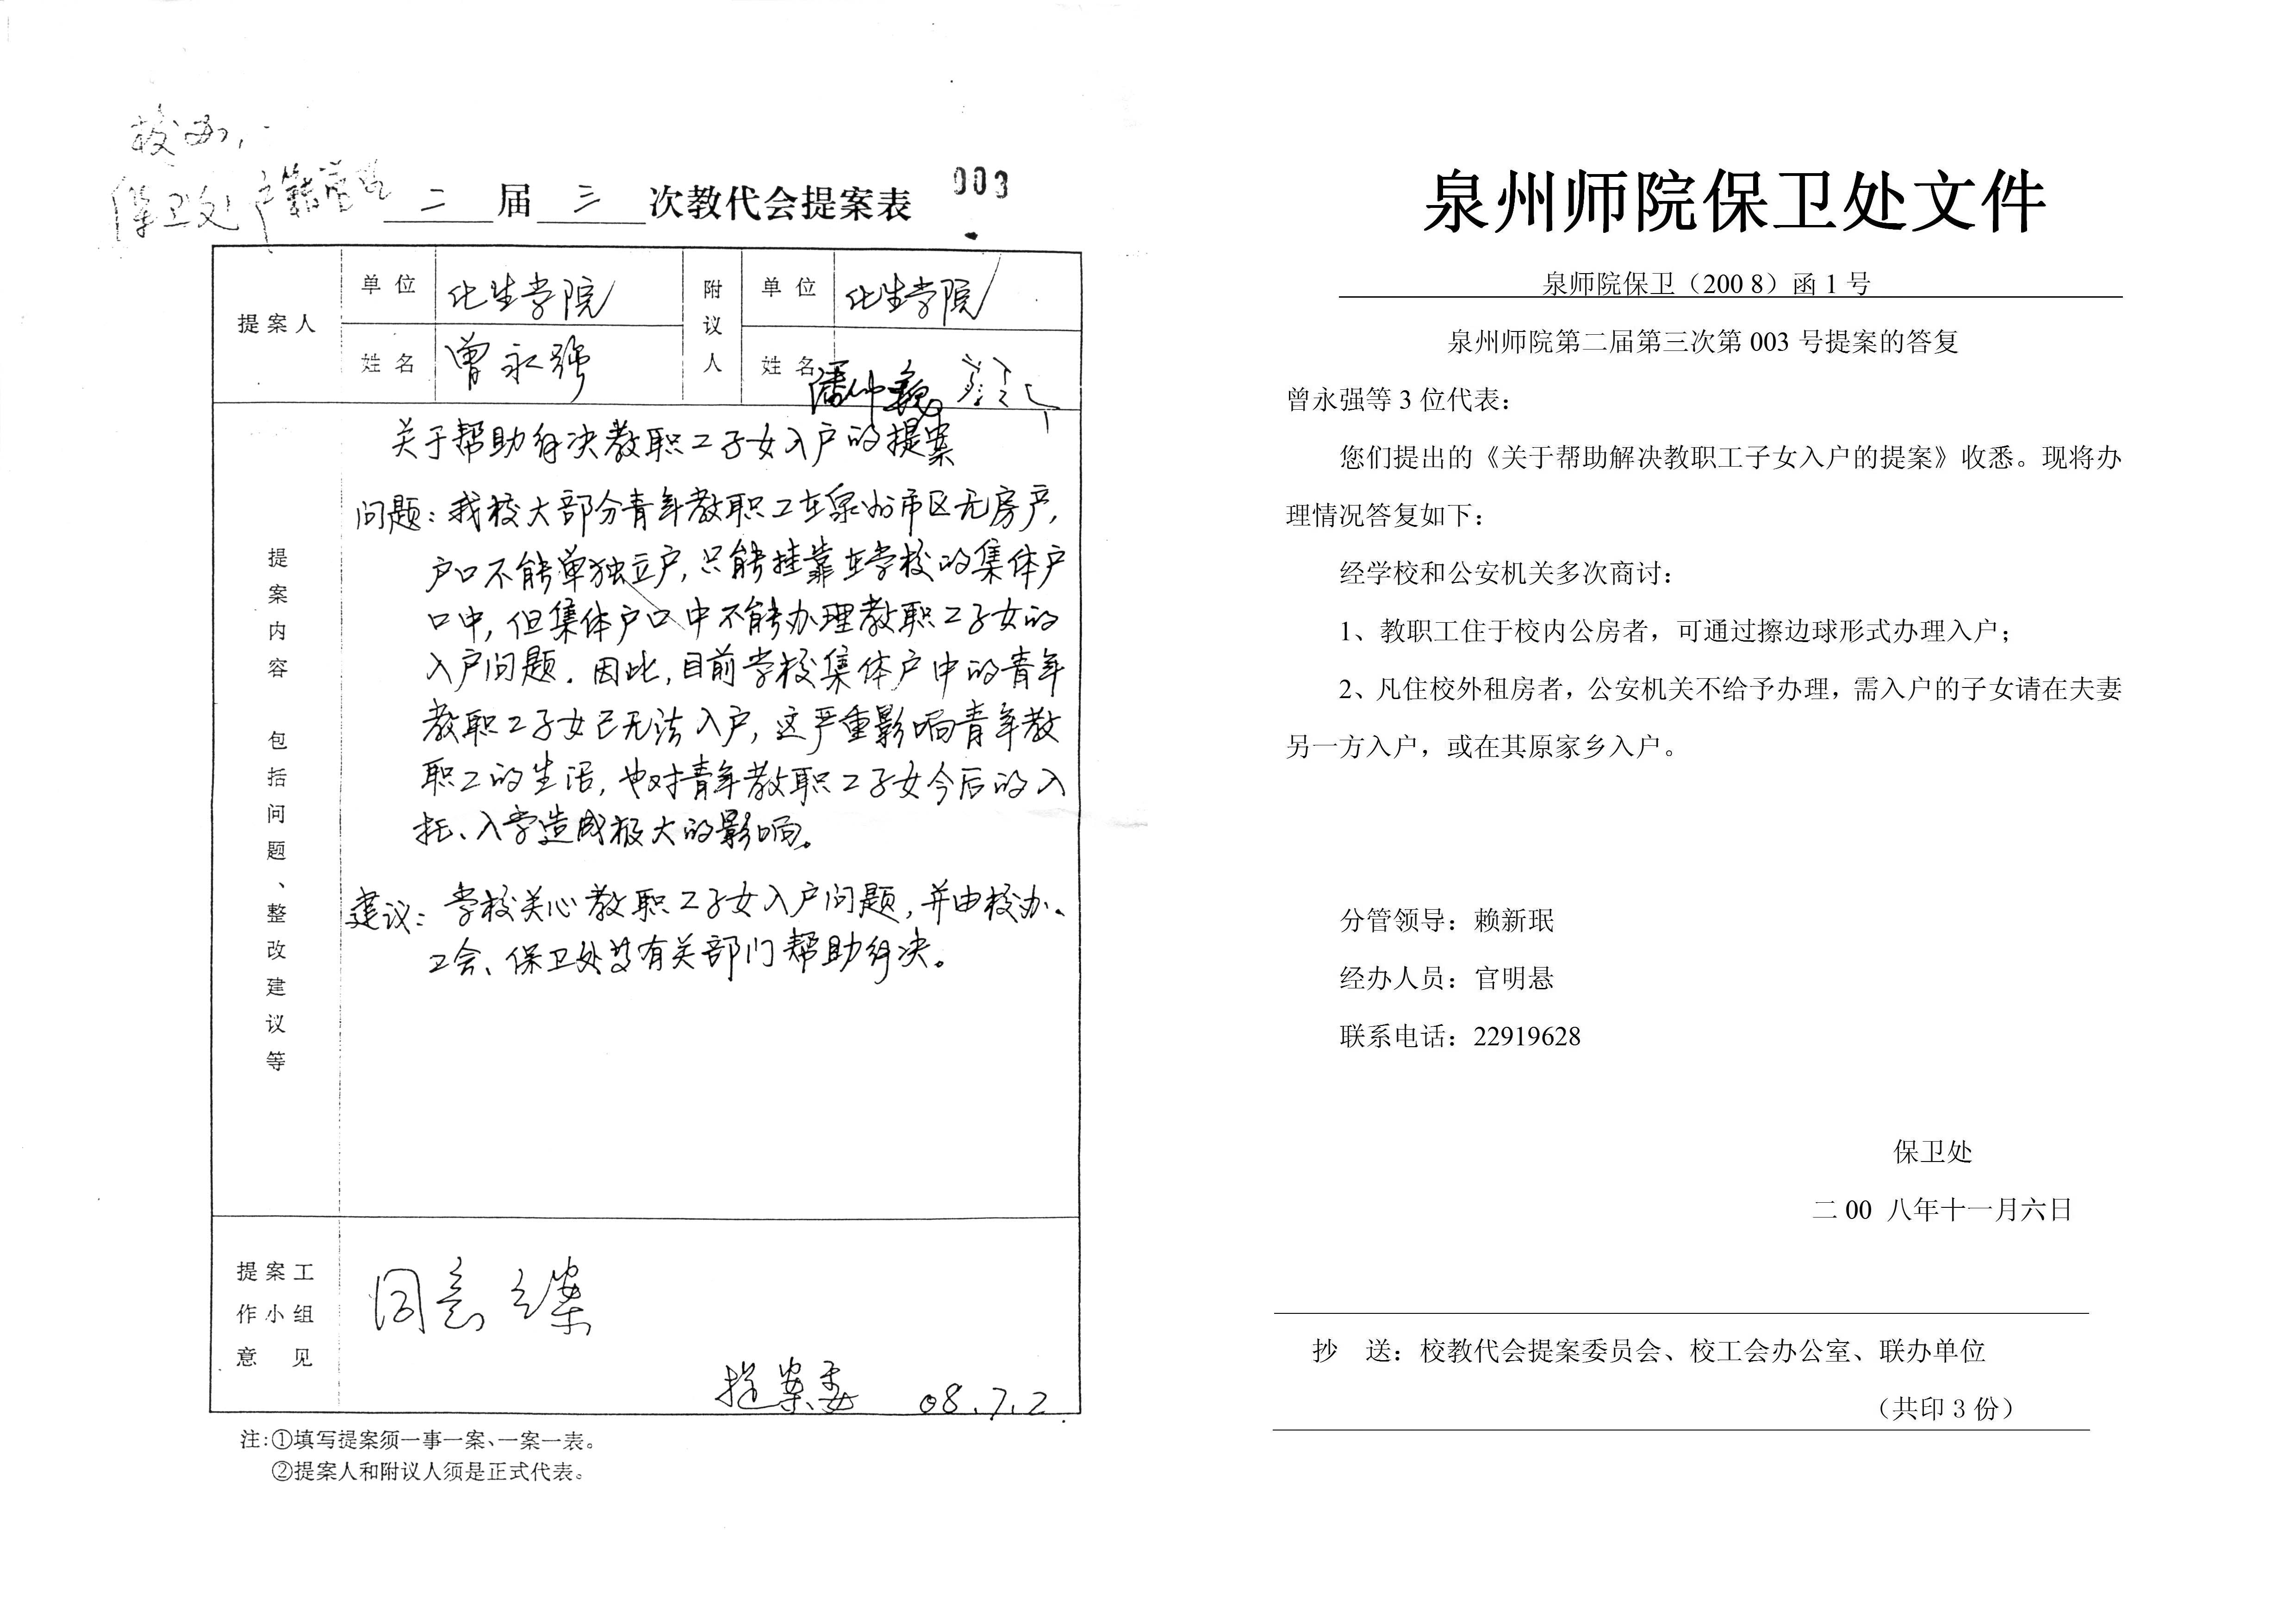 校办,
保卫处 户籍
二 届 三 次教代会提案表
003
提案人
单位
化生学院
姓名
曾永强
附议人
单位
化生学院
姓名
潘仲巍
提案内容 包括问题、整改建议等
关于帮助解决教职工子女入户的提案
问题:我校大部分青年教职工在泉州市区无房产,
户口不能单独立户,只能挂靠在学校的集体户
口中,但集体户口中不能办理教职工子女的
入户问题.因此,目前学校集体户中的青年
教职工子女已无法入户,这严重影响青年教
职工的生活,也对青年教职工子女今后的入
托、入学造成极大的影响。
建议:学校关心教职工子女入户问题,并由校办、
工会、保卫处等有关部门帮助解决。
提案工
作小组
意 见
同意立案
提案委 08.7.2
注:①填写提案须一事一案、一案一表。
②提案人和附议人须是正式代表。
泉州师院保卫处文件
泉师院保卫(200 8)函 1 号
泉州师院第二届第三次第 003 号提案的答复
曾永强等 3 位代表:
您们提出的《关于帮助解决教职工子女入户的提案》收悉。现将办
理情况答复如下:
经学校和公安机关多次商讨:
1、教职工住于校内公房者,可通过擦边球形式办理入户;
2、凡住校外租房者,公安机关不给予办理,需入户的子女请在夫妻
另一方入户,或在其原家乡入户。
分管领导:赖新珉
经办人员:官明悬
联系电话:22919628
保卫处
二 00 八年十一月六日
抄 送:校教代会提案委员会、校工会办公室、联办单位
(共印 3 份)